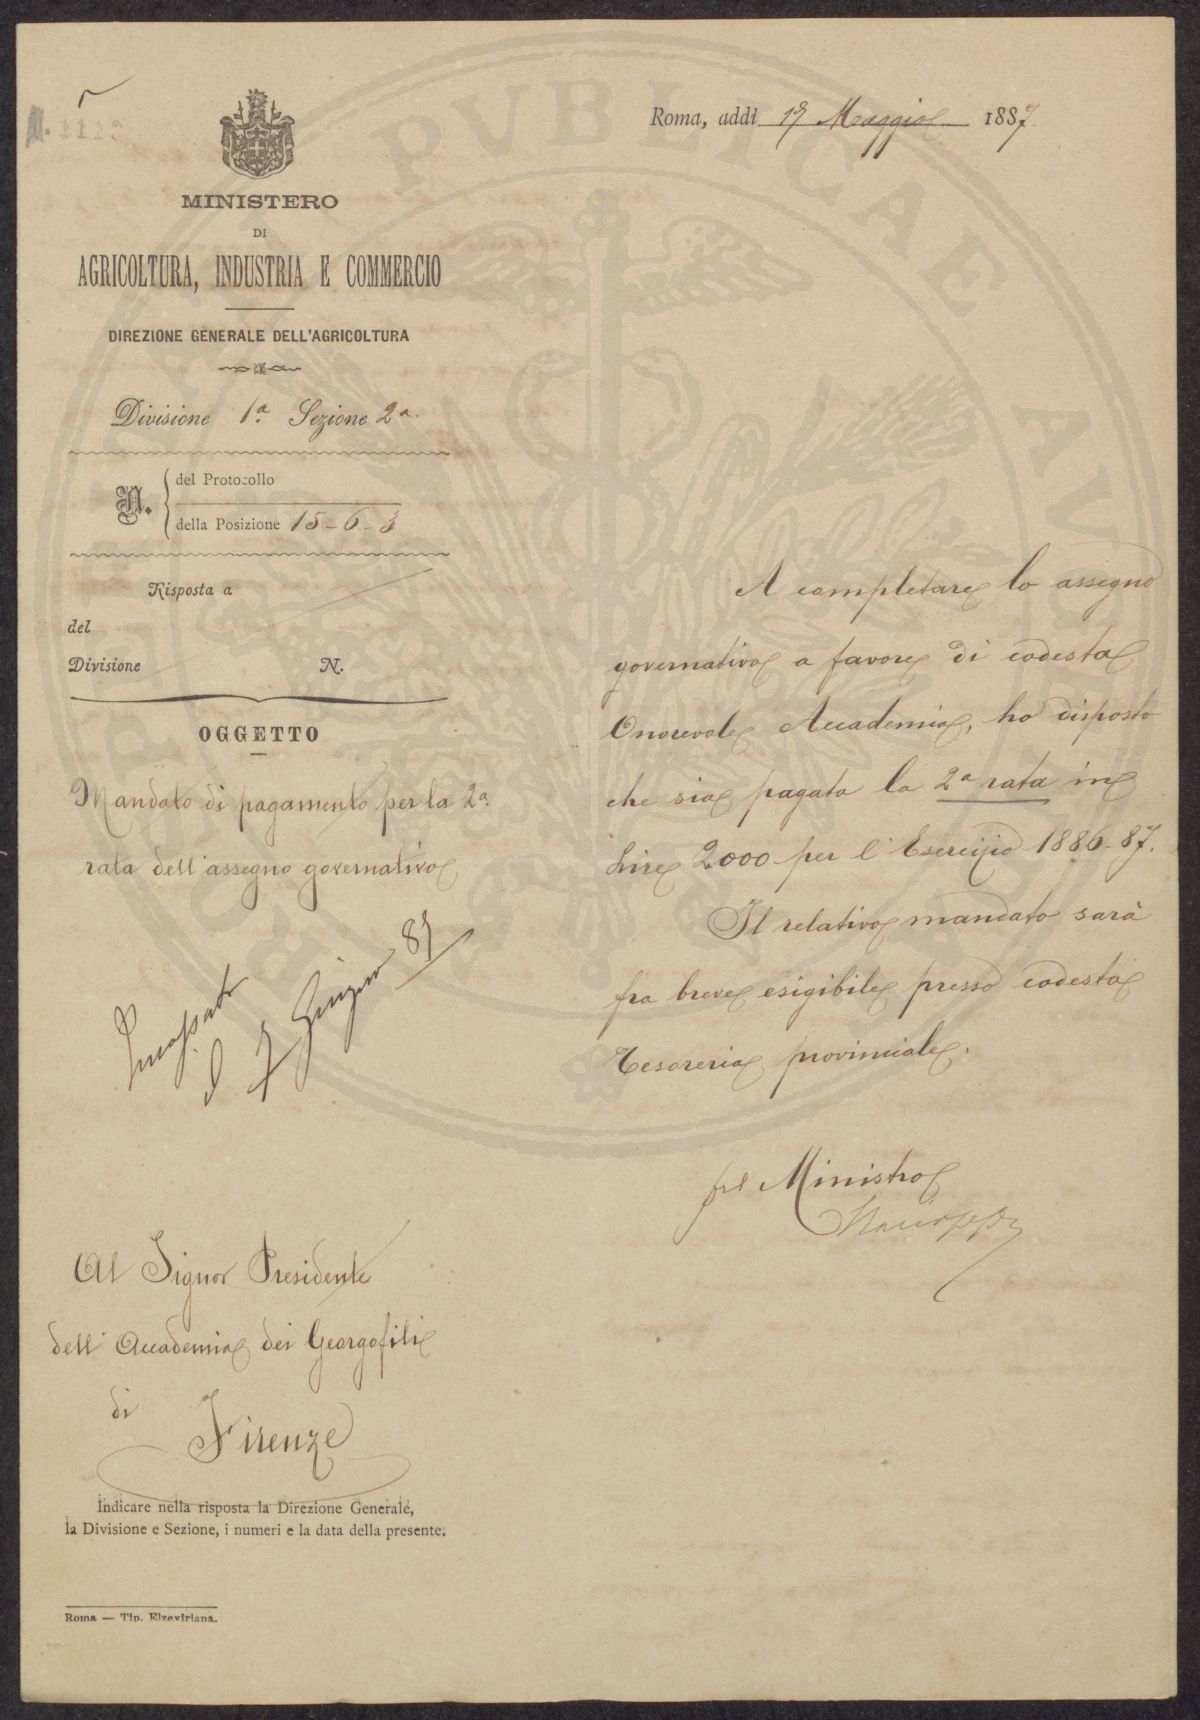 Roma, addì 17 Maggio 1887
MINISTERO
DI
AGRICOLTURA, INDUSTRIA E COMMERCIO
DIREZIONE GENERALE DELL'AGRICOLTURA
Divisione 1a. Sezione 2a.
N.
del Protocollo
della Posizione 15-6-3
Risposta a
del
Divisione N.
OGGETTO
Mandato di pagamento per la 2a.
rata dell'assegno governativo
Incassato
il 7 Giugno 87
Al Signor Presidente
dell'Accademia dei Georgofili
di
Firenze
Indicare nella risposta la Direzione Generale,
la Divisione e Sezione, i numeri e la data della presente.
Roma — Tip. Elzeviriana.
A completare lo assegno
governativo a favore di codesta
Onorevole Accademia, ho disposto
che sia pagata la 2a rata in
Lire 2000 per l'Esercizio 1886-87.
Il relativo mandato sarà
fra breve esigibile presso codesta
Tesoreria provinciale.
pel Ministro
PVBLICAE